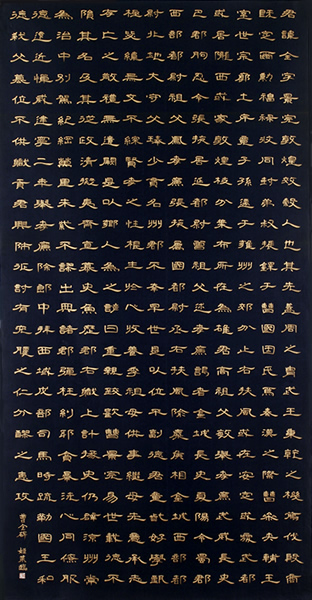 君諱全字景完敦煌效穀人也其先蓋周之胄武王秉乾之機翦伐殷商
既定爾勳福祿攸同封弟叔振鐸于曹國因氏焉秦漢之際曹參夾輔王
室世宗廓土斥竟子孫遷于雍州之郊分止右扶風或在安定或處武都
或居隴西或家敦煌枝分葉布所在為雄君高祖父敏舉孝廉武威長史
巴郡朐忍令張掖居延都尉曾祖父述孝廉謁者金城長史夏陽令蜀郡
西部都尉祖父鳳孝廉張掖屬國都尉丞右扶風隃麋侯相金城西部都
尉北地大守父琫少貫名州郡不幸早世是以位不副德君童齔好學甄
極毖緯無文不綜賢孝之性根生於心收養季祖母供事繼母先意承志
存亡之敬禮無遺闕是以鄉人為之諺曰重親致歡曹景完易世載德不
隕其名及其從政清擬夷齊直慕史魚歷郡右職上計掾史仍辟涼州常
為治中別駕紀綱萬里朱紫不謬出典諸郡彈枉糾邪貪暴洗心同僚服
德遠近憚威建寧二年舉孝廉除郎中拜西域戊部司馬時疏勒國王和
德弒父篡位不供職貢君興師征討有兗膿之仁分醪之惠攻
曹全碑